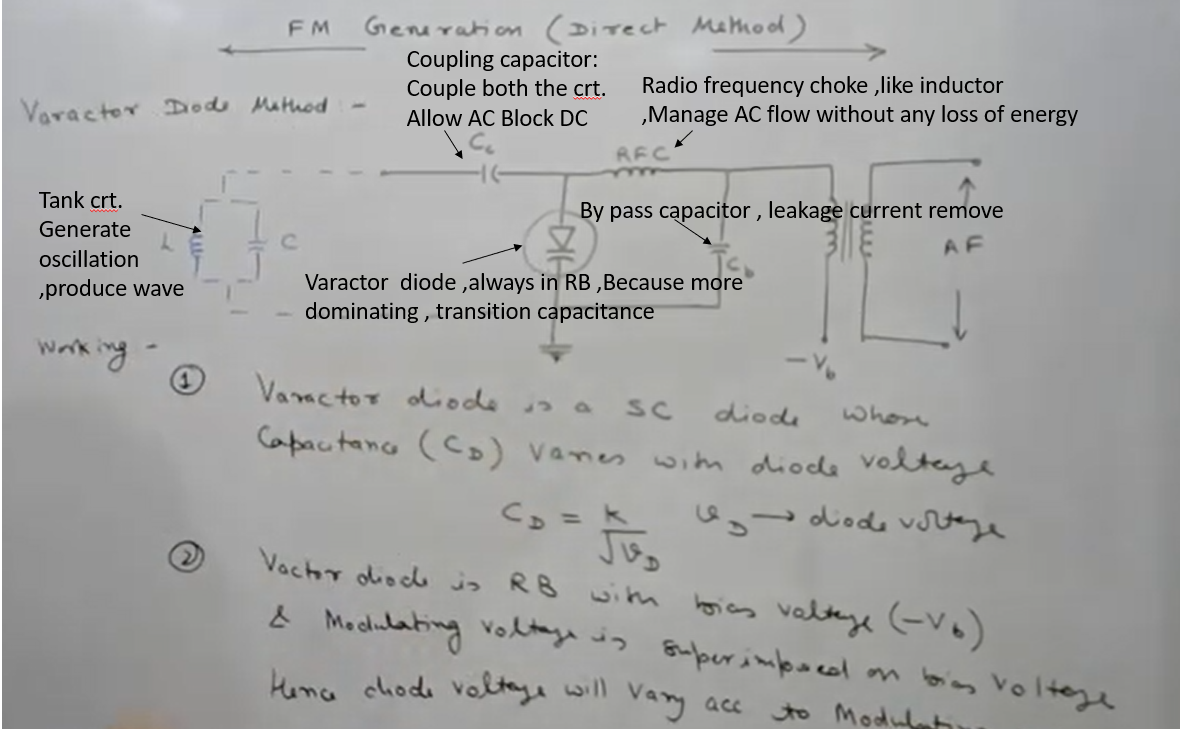 FM Generation (Direct Method)
Varactor Diode Method :-
Coupling capacitor:
Couple both the crt.
Allow AC Block DC
Radio frequency choke ,like inductor
,Manage AC flow without any loss of energy
Cc
RFC
Tank crt.
Generate
oscillation
,produce wave
L
C
By pass capacitor , leakage current remove
Cb
AF
Varactor diode ,always in RB ,Because more
dominating , transition capacitance
-Vb
Working -
① Varactor diode is a SC diode whose
Capacitance (CD) varies with diode voltage
CD = K/√VD VD → diode voltage
② Vactor diode is RB with bias voltage (-Vb)
& Modulating voltage is superimposed on bias voltage
Hence diode voltage will vary acc to